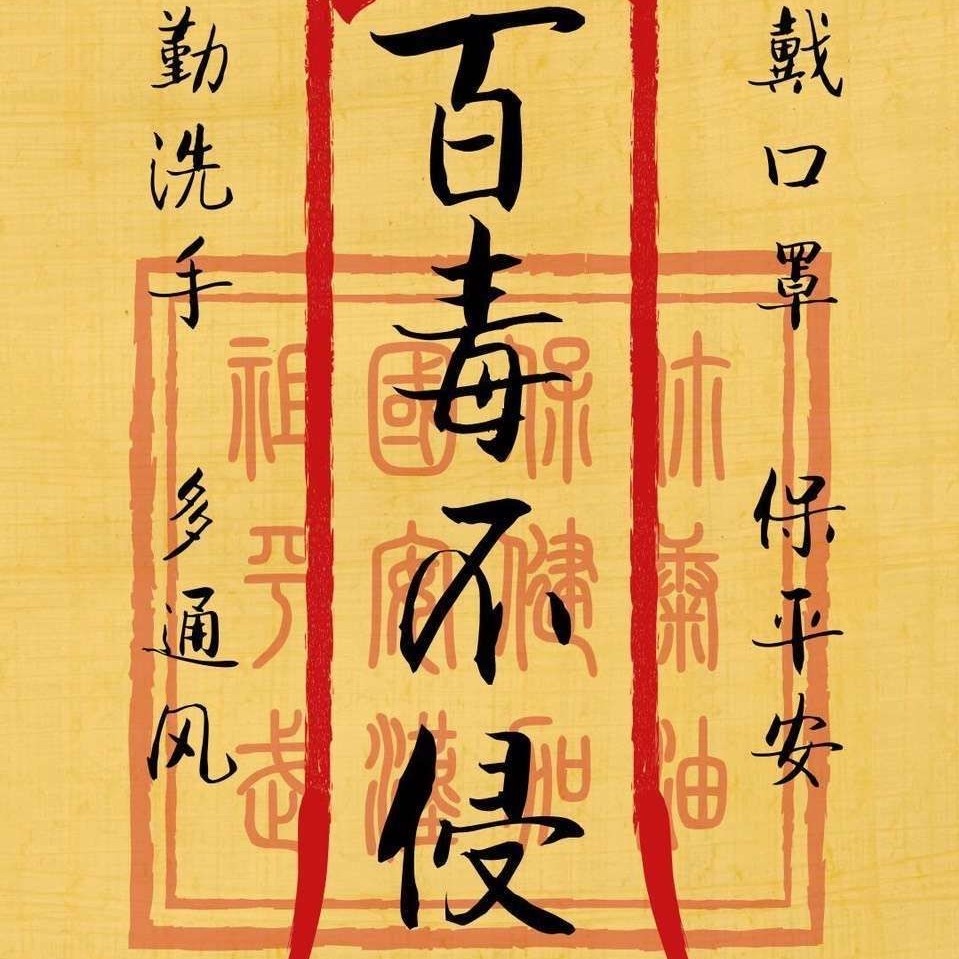 戴口罩 保平安
百毒不侵
勤洗手 多通风
祖國保
平安健康
武漢加油